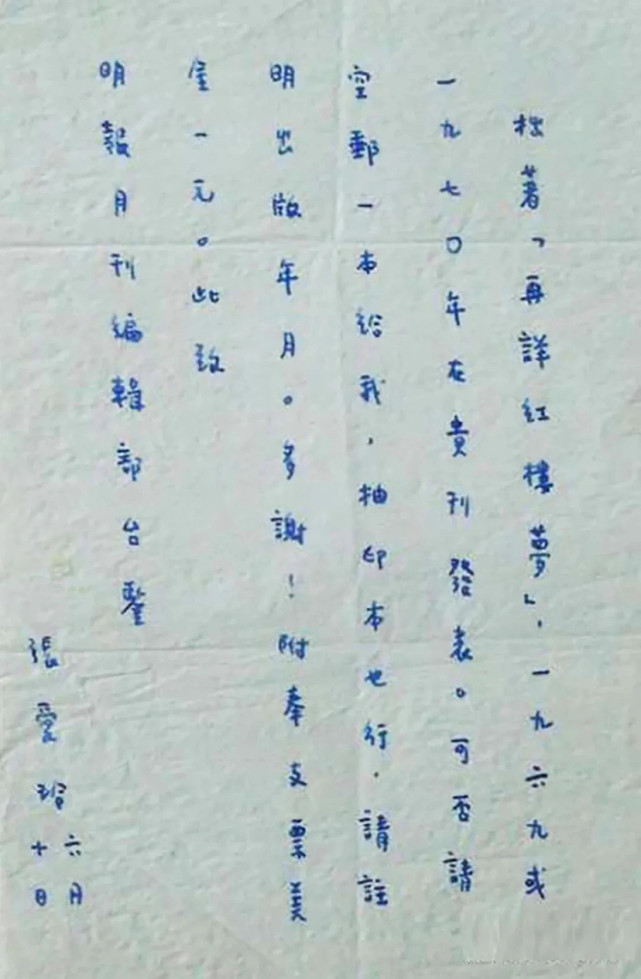 拙著「再詳紅樓夢」,一九六九或
一九七〇年在貴刊發表。可否請
空郵一本給我,抽印本也行.請註
明出版年月。多謝!附奉支票美
金一元。此致
明報月刊編輯部台鑒
張愛玲
六月
十日